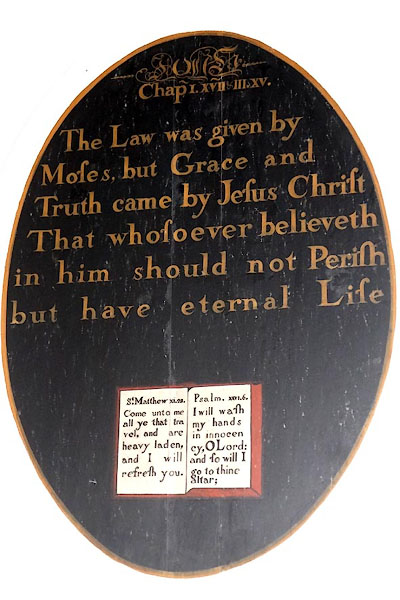 John
Chap I.XVII·III·XV.
The Law was given by
Moſes, but Grace and
Truth came by Jeſus Chriſt
That whoſoever believeth
in him should not Periſh
but have eternal Life
St. Matthew XI.28.
Come unto me
all ye that tra
vel, and are
heavy laden,
and I will
refreſh you.
Psalm. XXVI.6.
I will waſh
my hands
in innocen
cy, O Lord:
and ſo will I
go to thine
Altar;